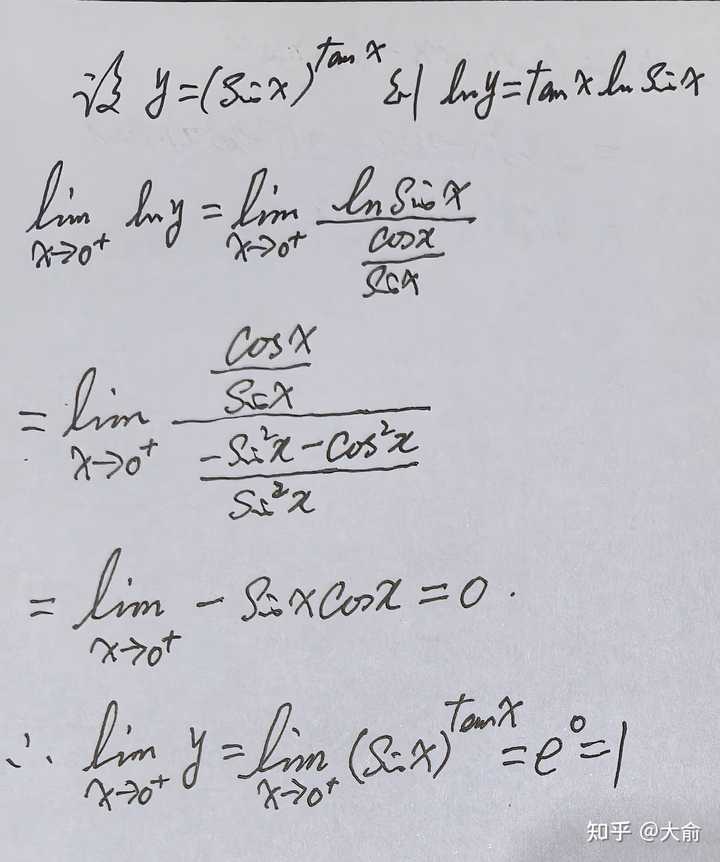 设 y=(sinx)^{tanx} 则 lny=tanx ln sinx
lim_{x→0⁺} lny = lim_{x→0⁺} \frac{ln sinx}{\frac{cosx}{sinx}}
= lim_{x→0⁺} \frac{\frac{cosx}{sinx}}{\frac{-sin²x-cos²x}{sin²x}}
= lim_{x→0⁺} -sinxcosx=0.
∴ lim_{x→0⁺} y = lim_{x→0⁺} (sinx)^{tanx} = e⁰=1
知乎 @大俞